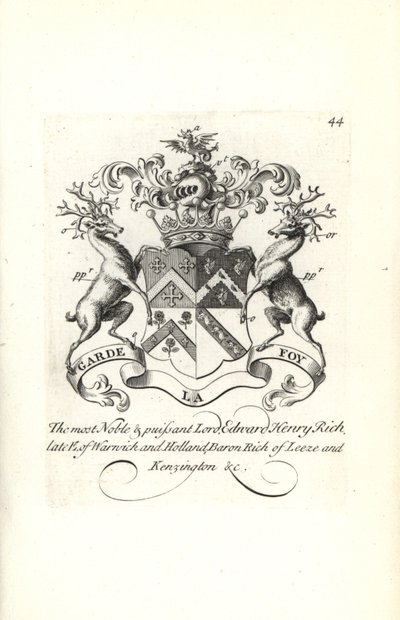 44
a
pt
o
or
ppr
ppr
o
GARDE LA FOY
The most Noble & puißant Lord, Edward Henry Rich,
late E. of Warwich and Holland, Baron Rich of Leeze and
Kenzington &c.